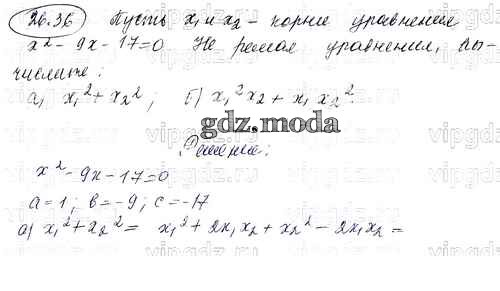 26.36 Пусть x₁ и x₂ - корни уравнения
x² - 9x - 17 = 0. Не решая уравнения, вы-
числите:
а) x₁² + x₂² ; б) x₁²x₂ + x₁x₂².
gdz.moda
Решение:
x² - 9x - 17 = 0
a = 1; b = -9; c = -17
а) x₁² + x₂² = x₁² + 2x₁x₂ + x₂² - 2x₁x₂ =